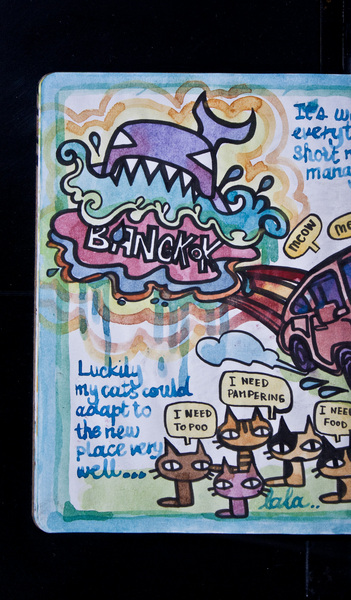 It's w
everyt
short
mana
BANGKOK
MEOW
ME
Luckily
my cats could
adapt to
the new
place very
well...
I NEED
TO POO
I NEED
PAMPERING
I NEED
FOOD
lala..